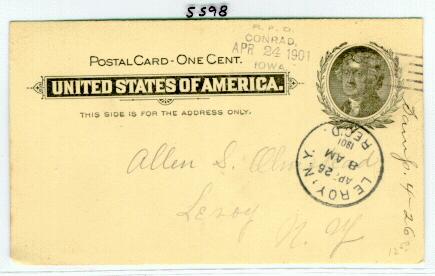 5598
R.P.O.
CONRAD,
APR 24 1901
IOWA.
POSTAL CARD - ONE CENT.
UNITED STATES OF AMERICA.
THIS SIDE IS FOR THE ADDRESS ONLY.
LE ROY, N.Y.
APR 26
8 AM
1901
REC'D.
Allen S. Olmsted
Leroy
N. Y
4-26